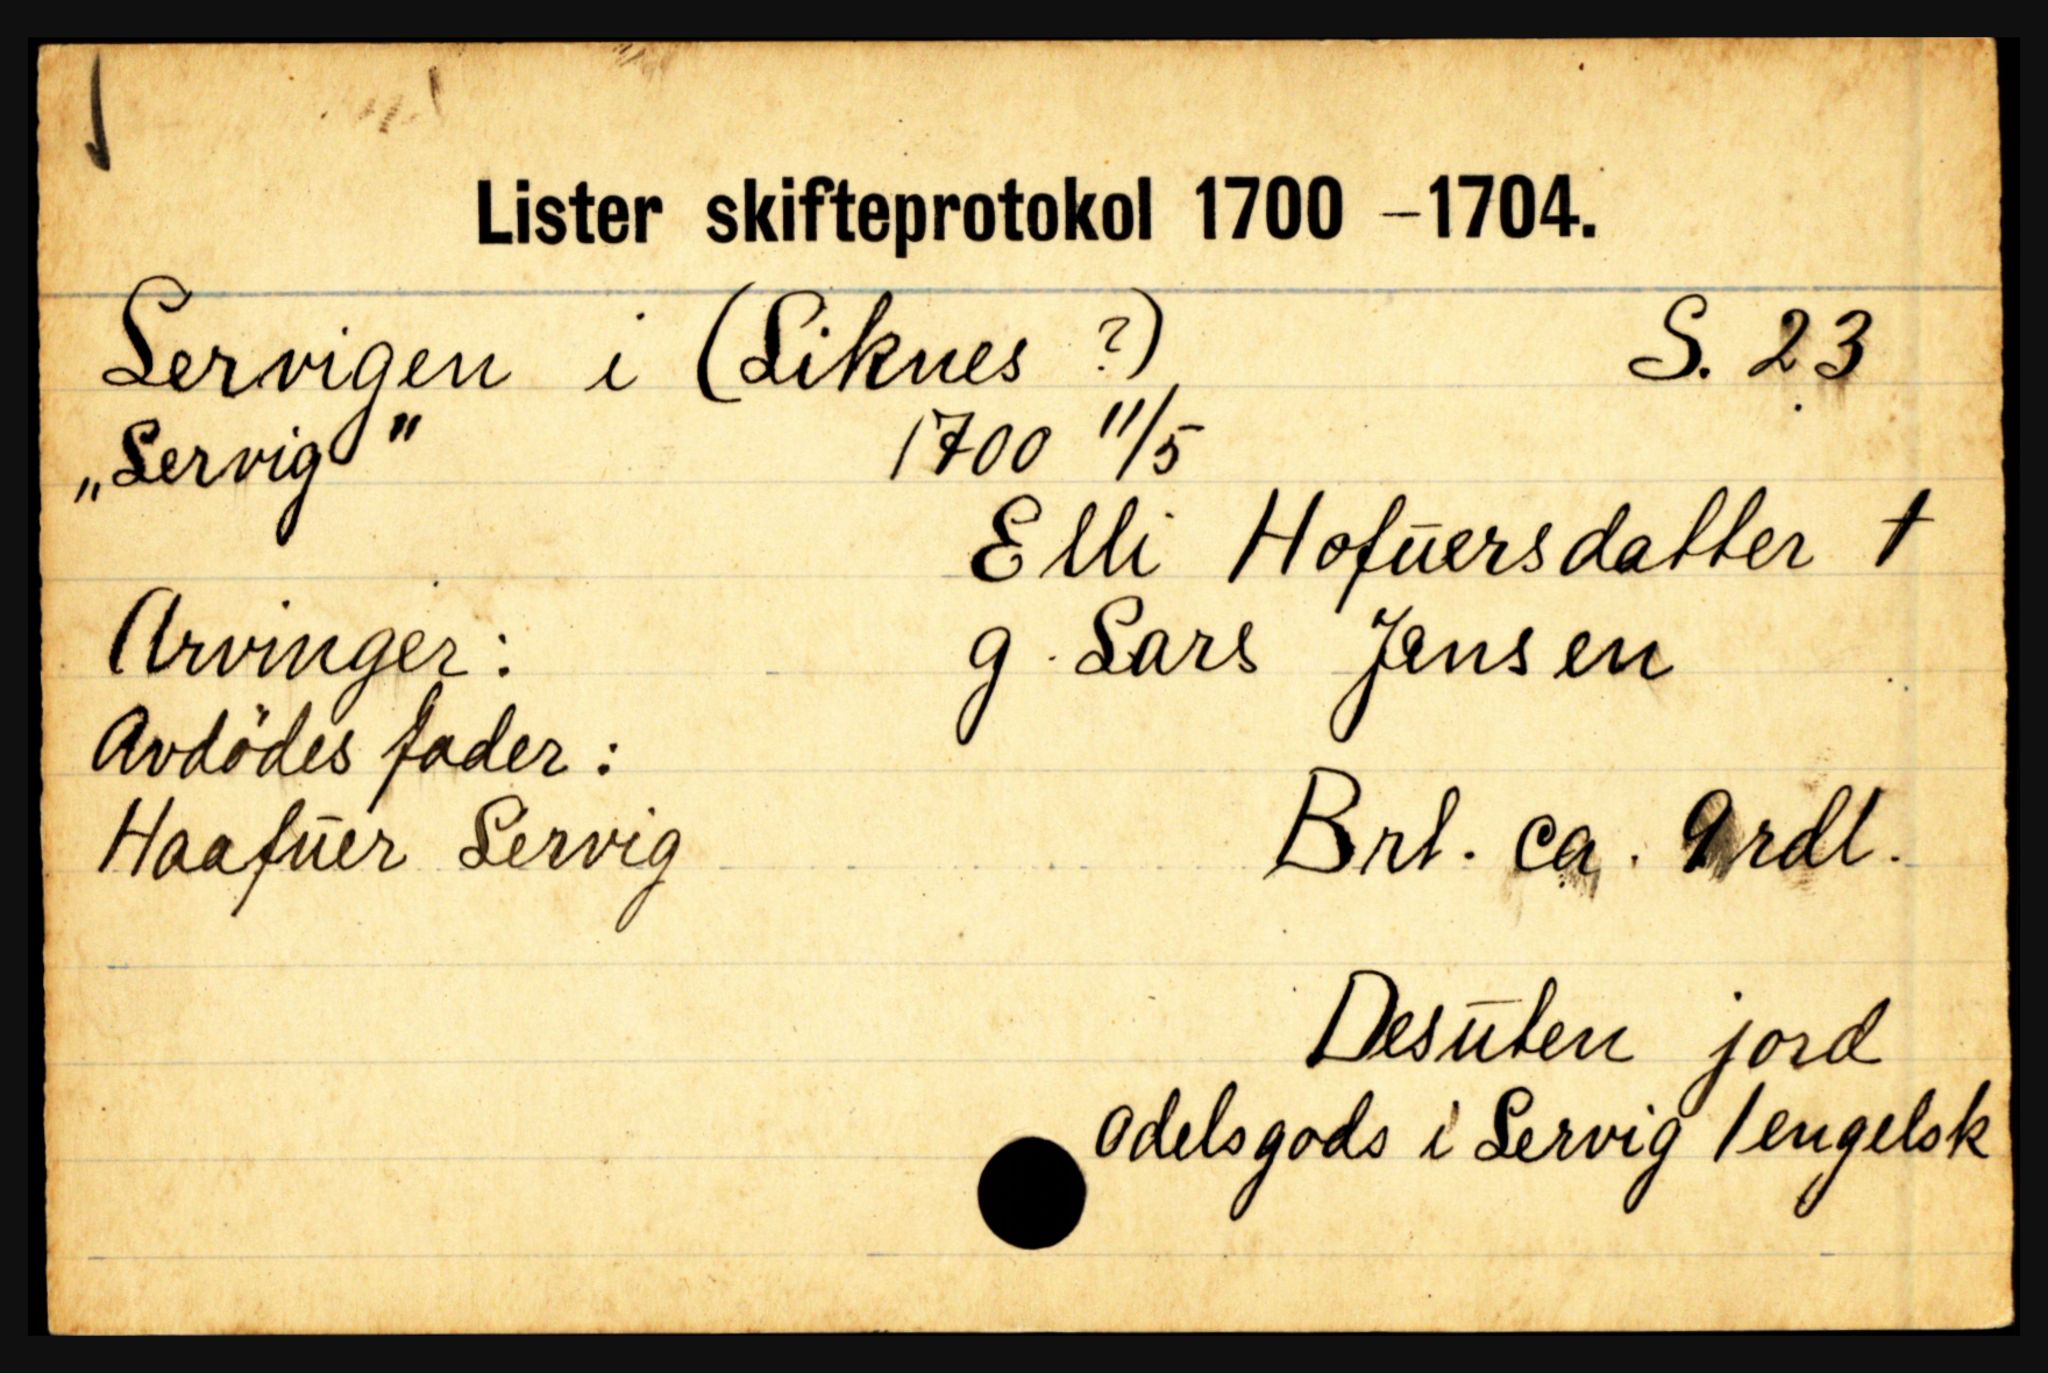 Lister skifteprotokol 1700 – 1704.
Lervigen i (Liknes ?) S. 23
„Lervig" 1700 11/5
Elli Hofuersdatter †
Arvinger: g. Lars Jensen
Avdödes fader:
Haafuer Lervig Brl. ca. 9 rdl.
Desuten jord
odelsgods i Lervig 1 engelsk